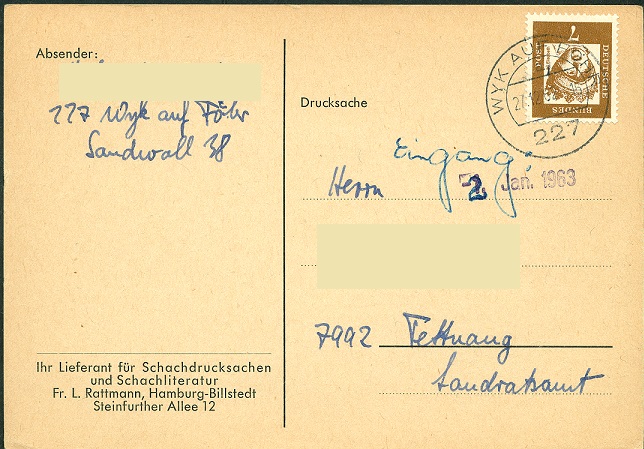 Absender:
227 Wyk auf Föhr
Sandwall 38
Ihr Lieferant für Schachdrucksachen
und Schachliteratur
Fr. L. Rattmann, Hamburg-Billstedt
Steinfurther Allee 12
Drucksache
7
DEUTSCHE
BUNDES
POST
WYK AUF FÖHR
227
Eingang:
2 Jan. 1963
Herrn
7992 Tettnang
Landratsamt